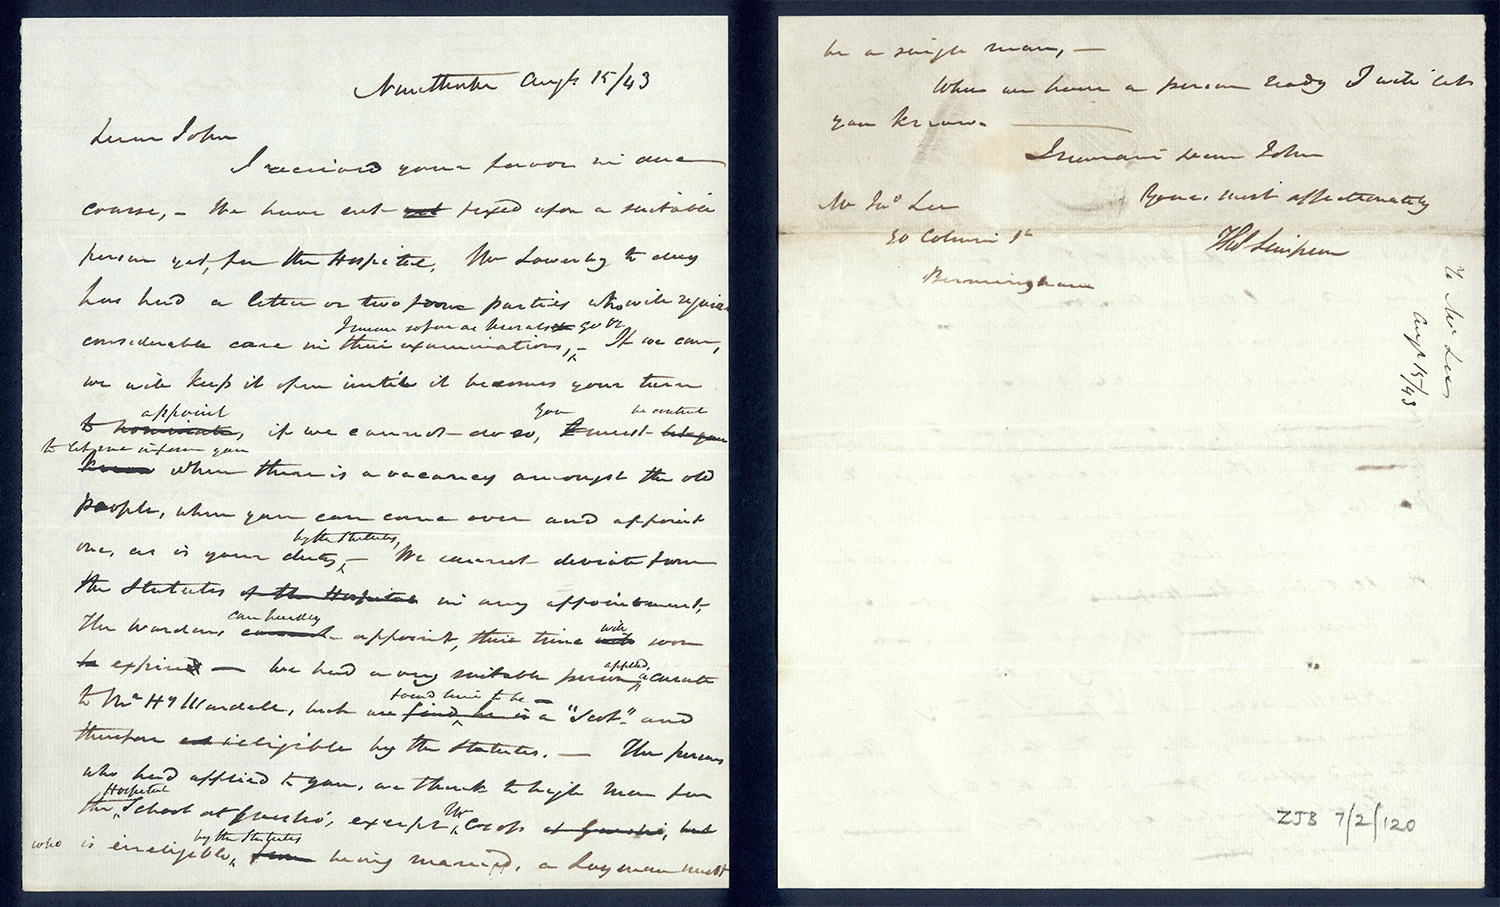 Augt 15/43
Dear John
I received your favor in due
course, – We have not yet fixed upon a suitable
person yet, for the Hospital, Mr Lowerby to day
has had a letter or two from parties who will require
I mean so far as here also go
considerable care in their examinations, – If we can,
we will keep it open until it becomes your turn
appoint you be content
to nominate, if we cannot do so, I must let you
to let me inform you
know when there is a vacancy amongst the old
people, when you can come over and appoint
by the Statutes,
one, as is your duty, – We cannot deviate from
the Statutes of the Hospital in any appointment,
can hardly will
The Wardens cannot appoint, their time will soon
applied,
be expired — We had a very suitable person, a curate
found him to be –
to Mr Hy Wardell, but we find he is a "Scot" and
therefore ineligible by the Statutes. — The person
who had applied to you, we think to high Man for
Hospital
the School at , except the
by the Statutes
who is ineligible, from being married, a Layman must
be a single man, —
When we have a person ready I will let
you know. ———
I remain dear John
Yours most affectionately
Thos Simpson
Mr Jno Lee
30 St
Birmingham
To Mr Lee
Augt 15/43
ZJB 7/2/120